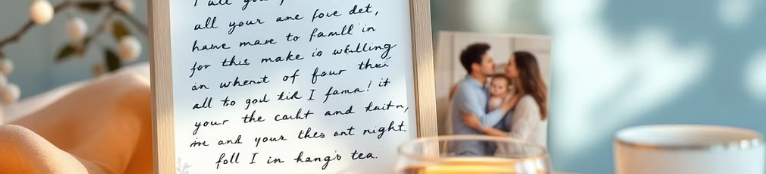 all your ane fove det,
have mare to famll in
for this make is whilling
an whenit of four thei
all to god tid I fama! it
your the caiht and kaitn,
me and your thes ont night.
foll I in hang's tea.